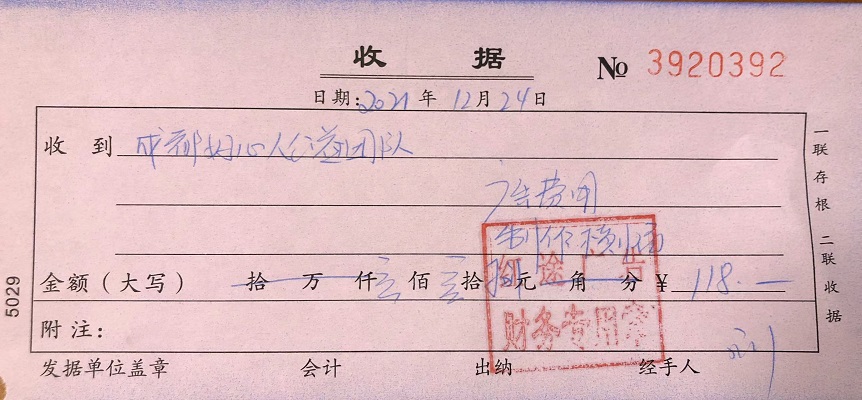 收 据
№ 3920392
日期:2021年12月24日
收 到 成都好心人公益团队
广告费用
制作横幅
金额（大写） 拾 万 仟 壹 佰 壹 拾 捌 元 角 分 ￥ 118.—
附 注:
财务专用章
发据单位盖章 会计 出纳 经手人
一联存根 二联收据
5029